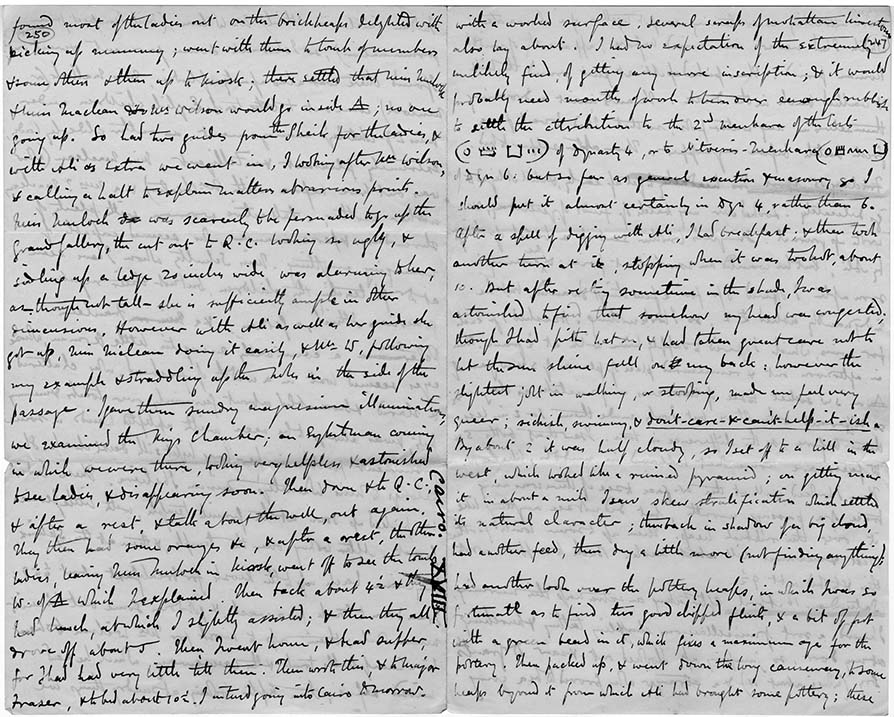 250
found most of the ladies out on the brickheaps delighted with
picking up mummy; went with them to tomb of numbers
& some others & then up to kiosk; there settled that Miss Murloch
& Miss Maclean & Mrs Wilson would go inside △; no one
going up. So had two guides from the Sheikh for the ladies, &
with Ali as extra we went in, I looking after Mrs Wilson,
& calling a halt to explain matters at various points.
Miss Murloch was scarcely to be persuaded to go up the
grand gallery, the cut out to Q.C. looking so ugly, &
sidling up a ledge 20 inches wide was alarming to her,
as though not tall she is sufficiently ample in other
dimensions. However with Ali as well as her guide she
got up, Miss Maclean doing it easily, & Mrs W. following
my example & straddling up the holes in the side of the
passage. I gave them sundry magnesium illuminations,
we examined the Kings Chamber; an Englishman coming
in while we were there, looking very helpless & astonished
to see ladies, & disappearing soon. Then down & to Q.C.;
& after a rest & talk about the well, out again.
They then had some oranges &c, & after a rest, the other
ladies, leaving Miss Murloch in kiosk, went off to see the tombs
W. of △ which I explained. Then back about 4½ & they
had lunch, at which I slightly assisted; & then they all
drove off about 5. Then I went home, & had supper,
for I had had very little till then. Then wrote this, & to Major
Fraser, & to bed about 10½. I intend going into Cairo tomorrow.
Cairo. XVIII
247
with a worked surface. Several scraps of Mokattam limestone
also lay about. I had no expectation of the extremely
unlikely find, of getting any more inscription; & it would
probably need months of work to turn over enough rubbish
to settle the attribution to the 2nd Menkara of the lists
of Dynasty 4, or to Nitocris-Menkara
of Dyn 6: but so far as general execution & masonry go I
should put it almost certainly in Dyn 4, rather than 6.
After a spell of digging with Ali, I had breakfast; & then took
another turn at it, stopping when it was too hot, about
10. But after resting sometime in the shade, I was
astonished to find that somehow my head was congested,
though I had pith hat on, & had taken great care not to
let the sun shine full on my back: however the
slightest jolt in walking, or stooping, made me feel very
queer; sickish, swimmy, & don't-care-&-can't-help-it-ish.
By about 2 it was half cloudy, so I set off to a hill in the
west, which looked like a ruined pyramid; on getting near
it in about a mile I saw skew stratification which settled
its natural character; then back in shadow of a big cloud,
had another feed, then dug a little more (not finding anything)
had another look over the pottery heaps, in which I was so
fortunate as to find two good chipped flints, & a bit of pot
with a green bead in it, which fixes a maximum age for the
pottery. Then packed up, & went down the long causeway, to some
heaps beyond it from which Ali had brought some pottery; these